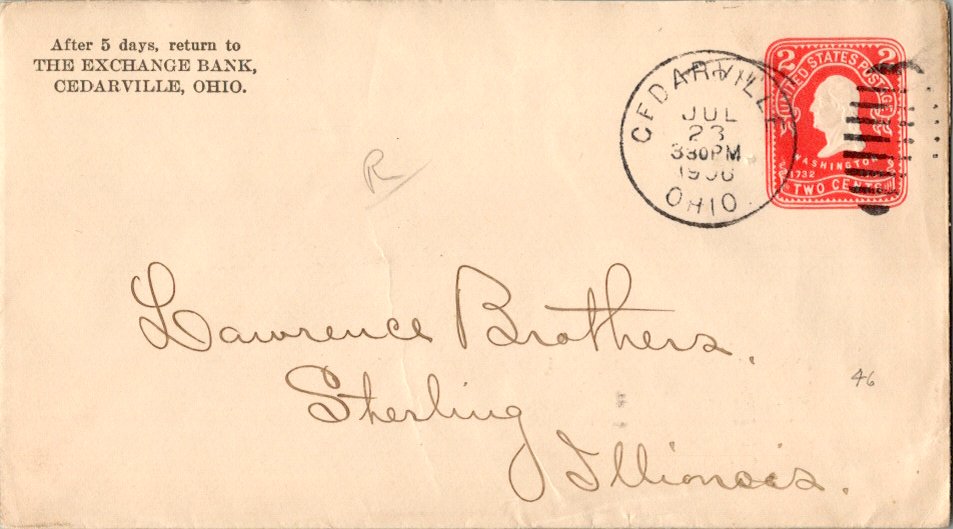 After 5 days, return to
THE EXCHANGE BANK,
CEDARVILLE, OHIO.
CEDARVILLE
JUL
23
330PM
1906
OHIO
2 2
UNITED STATES POSTAGE
WASHINGTON
1732
TWO CENTS
R
Lawrence Brothers.
46
Sterling
Illinois.